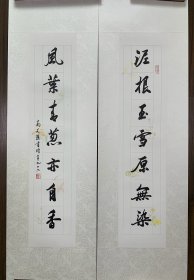 泥根玉雪原無染
風葉青葱亦自香